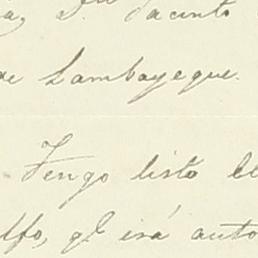 a, Dn Jacinto
de Lambayeque.
Tengo listo el
lfo, qe irá auto